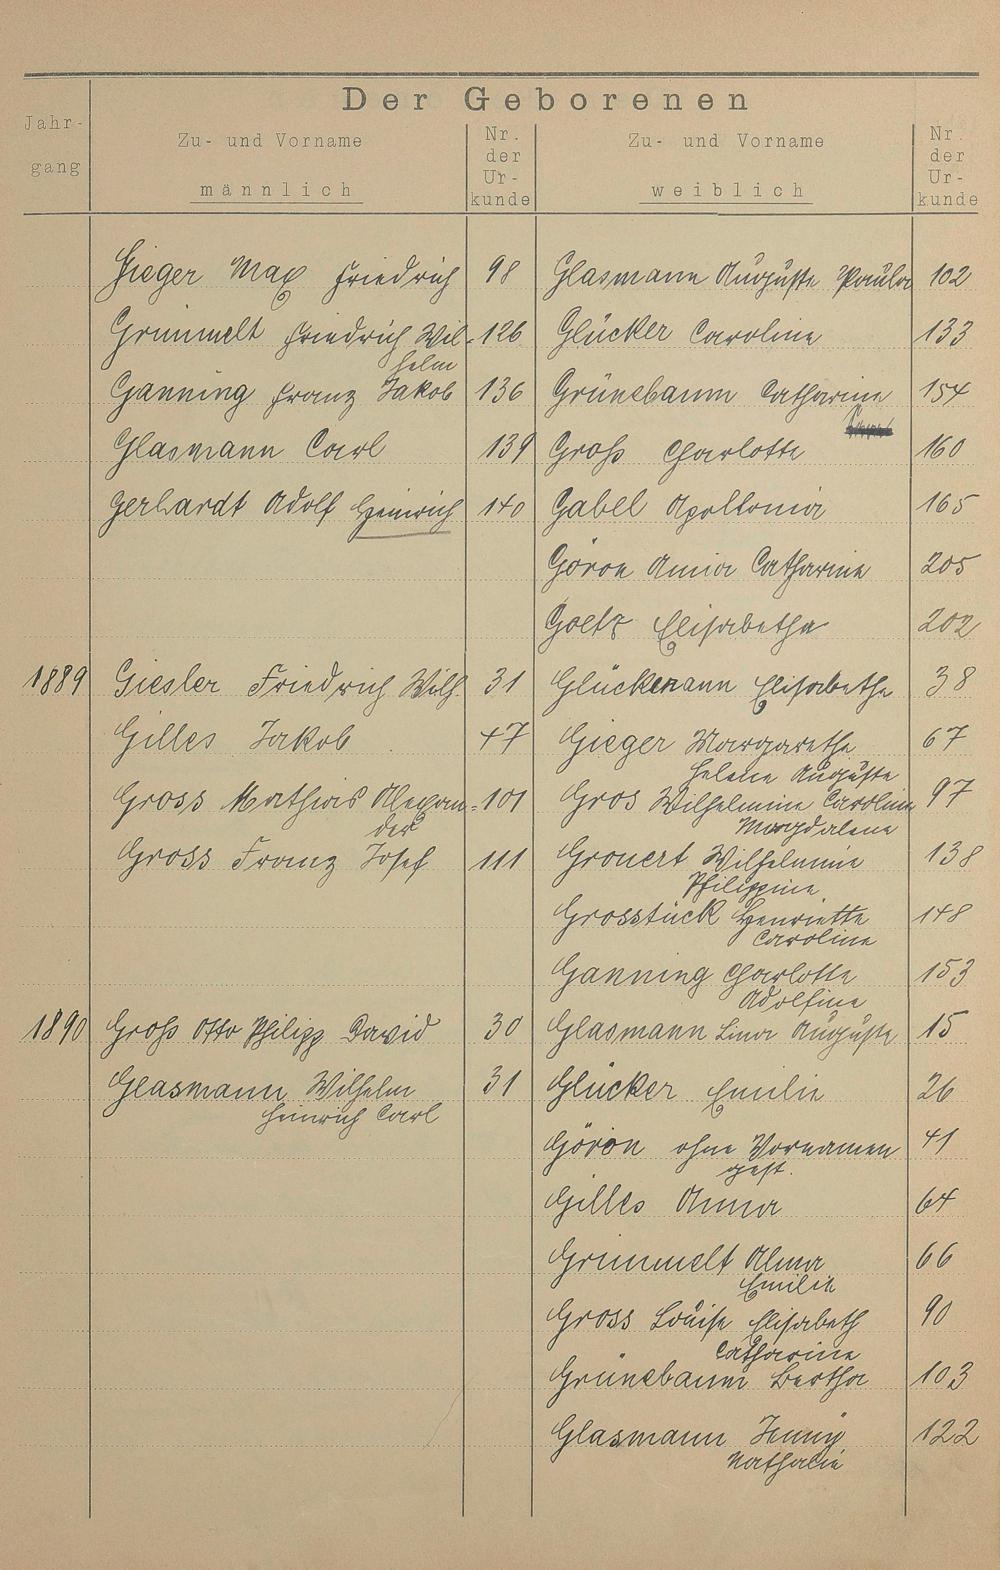 Der Geborenen
Jahr-
gang
Zu- und Vorname
männlich
Nr.
der
Ur-
kunde
Zu- und Vorname
weiblich
Nr.
der
Ur-
kunde
Gieger Max Friedrich 98 Glasmann Auguste Paula 102
Grimmelt Friedrich Wil- 126 Glücker Caroline 133
helm
Ganning Franz Jakob 136 Grünebaum Catharine 154
Glasmann Carl 139 Groß Charlotte 160
Gerhardt Adolf Heinrich 140 Gabel Apollonia 165
Göron Anna Catharine 205
Goetz Elisabetha 202
1889 Giesler Friedrich Wilh 31 Glückmann Elisabethe 38
Gilles Jakob 47 Gieger Margarethe 67
Helene Auguste
Gross Mathias Alexan- 101 Gros Wilhelmine Caroline 97
der Magdalena
Gross Franz Josef 111 Grouert Wilhelmine 138
Philippine
Grosstück Henriette 148
Caroline
Ganning Charlotte 153
Adolfine
1890 Groß Otto Philipp David 30 Glasmann Lina Auguste 15
Glasmann Wilhelm 31 Glücker Emilie 26
Heinrich Carl
Göron ohne Vornamen 41
gest.
Gilles Anna 64
Grimmelt Alma 66
Emilie
Gross Louise Elisabeth 90
Catharine
Grünebaum Bertha 103
Glasmann Jenny 122
Nathalie